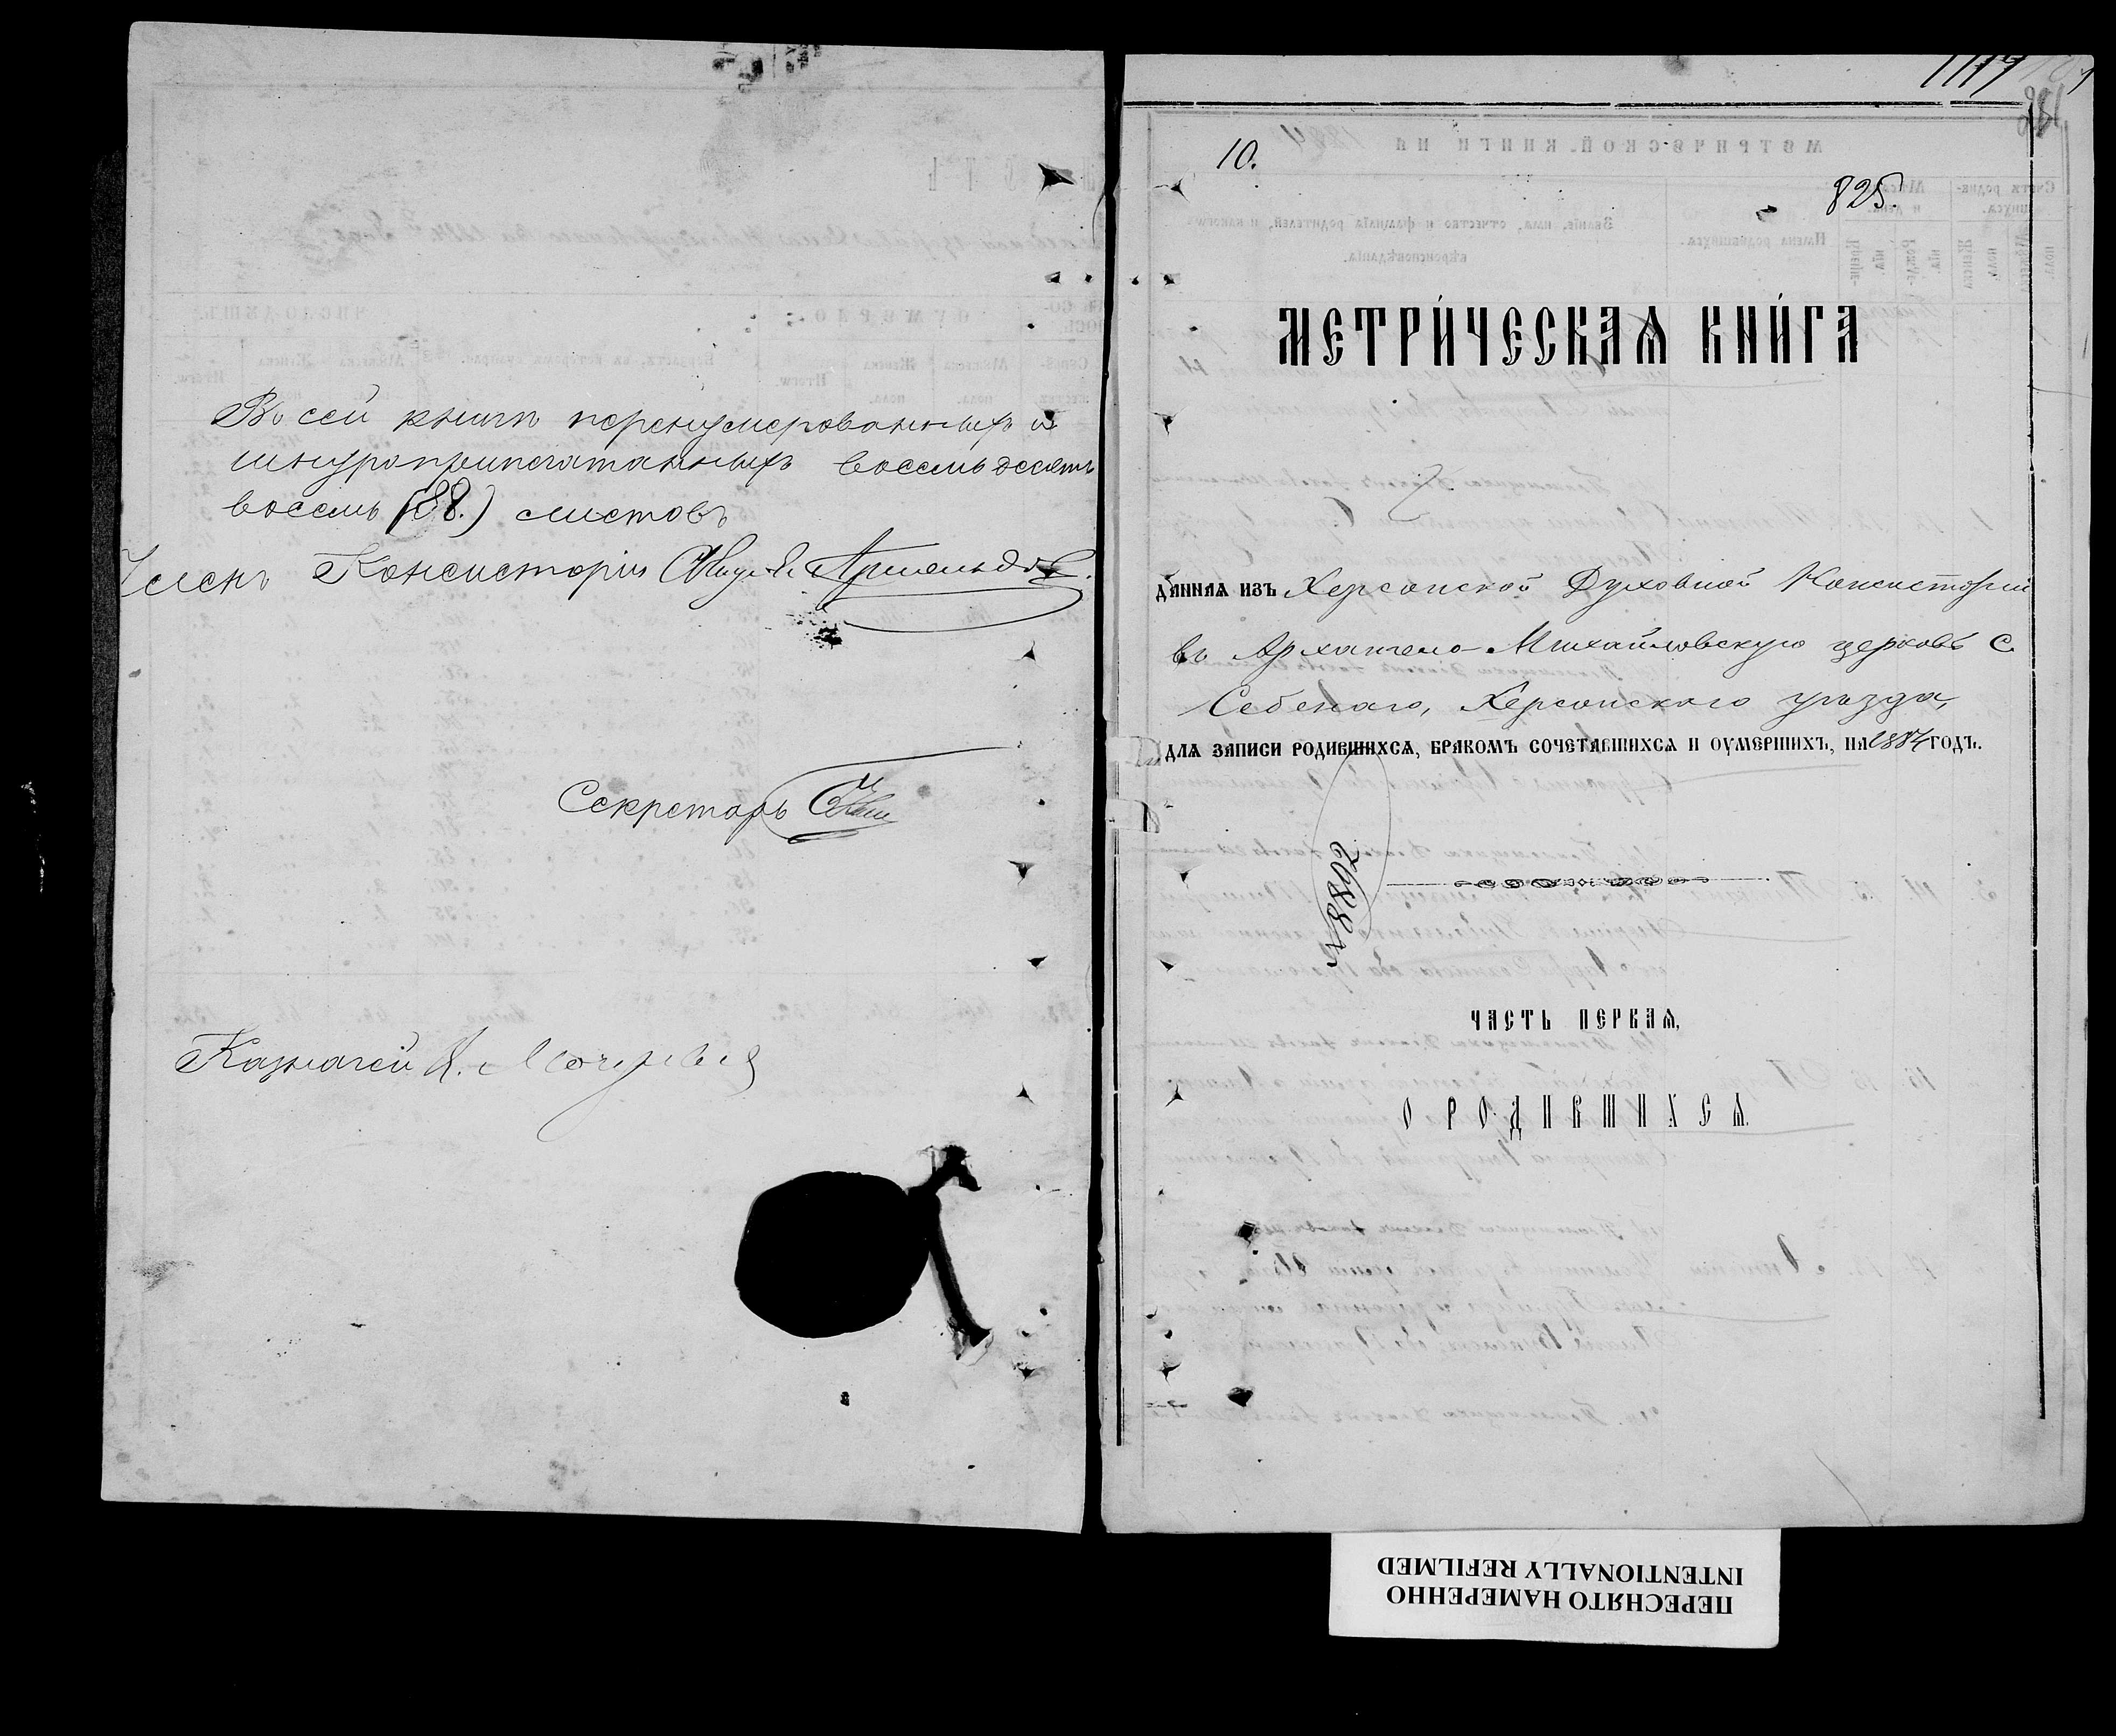 Въ сей книгѣ перенумерованныхъ и
шнуроприпечатанныхъ восемьдесятъ
восемь (88.) листовъ
Членъ Консисторіи
Секретарь
Казначей
10.
825.
МЕТРИ́ЧЕСКАѦ КНИ́ГА
даннаѧ изъ Херсонской Духовной Консисторіи
въ Архангело-Михайловскую церковь с.
Себенаго, Херсонскаго уѣзда,
длѧ записи родившихсѧ, бракомъ сочетавшихсѧ и оумершихъ, на 1884 годъ.
ЧАСТЬ ПЕРВАѦ,
О РОДИВШИХСѦ.
ПЕРЕСНЯТО НАМЕРЕННО
INTENTIONALLY REFILMED